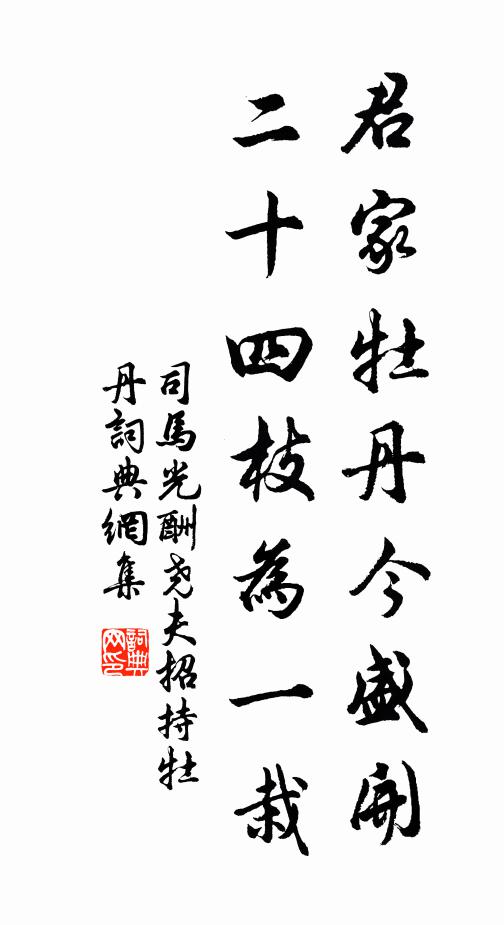 君家牡丹今盛開
二十四枝為一栽
司馬光酬尧夫招持牡
丹詞典網集
詞典
网印